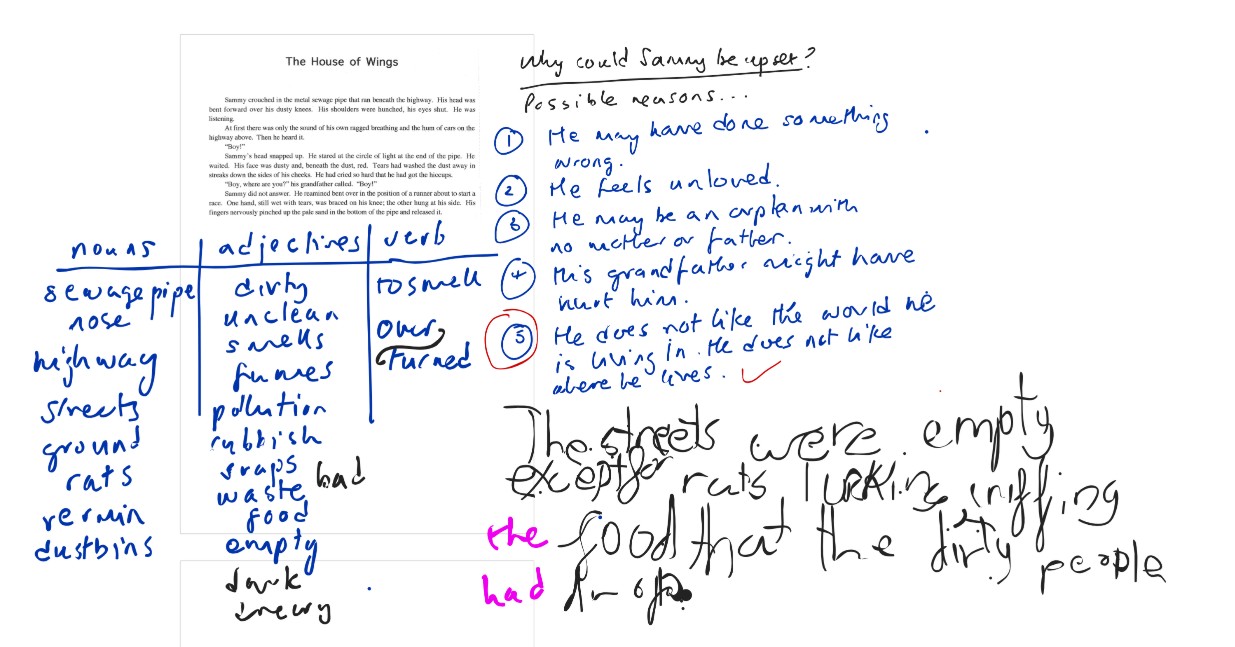 The House of Wings
Sammy crouched in the metal sewage pipe that ran beneath the highway. His head was
bent forward over his dusty knees. His shoulders were hunched, his eyes shut. He was
listening.
At first there was only the sound of his own ragged breathing and the hum of cars on the
highway above. Then he heard it.
"Boy!"
Sammy's head snapped up. He stared at the circle of light at the end of the pipe. He
waited. His face was dusty and, beneath the dust, red. Tears had washed the dust away in
streaks down the sides of his cheeks. He had cried so hard that he had got the hiccups.
"Boy, where are you?" his grandfather called. "Boy!"
Sammy did not answer. He reamined bent over in the position of a runner about to start a
race. One hand, still wet with tears, was braced on his knee; the other hung at his side. His
fingers nervously pinched up the pale sand in the bottom of the pipe and released it.
Why could Sammy be upset?
Possible reasons...
1 He may have done something
wrong.
2 He feels unloved.
3 He may be an orplan with
no mother or father.
4 His grandfather might have
hurt him.
5 He does not like the would he
is living in. He does not like
where he lives.
nouns adjectives verb
sewage pipe dirty to smell
nose unclean over
highway smells turned
streets fumes
ground pollution
rats rubbish
vermin sraps bad
dustbins waste
food
empty
dark
dreary
The streets were empty
except for rats, lurking, sniffing
the food that the dirty people
had